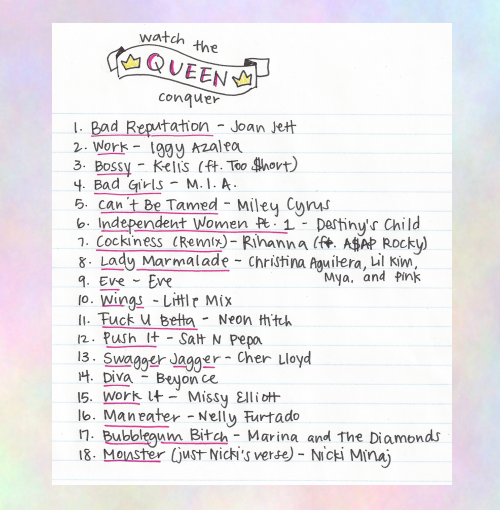 watch the
QUEEN
conquer
1. Bad Reputation - Joan Jett
2. Work - Iggy Azalea
3. Bossy - Kelis (ft. Too $hort)
4. Bad Girls - M.I.A.
5. Can't Be Tamed - Miley Cyrus
6. Independent Women Pt. 1 - Destiny's Child
7. Cockiness (Remix) - Rihanna (ft. A$AP Rocky)
8. Lady Marmalade - Christina Aguilera, Lil Kim,
Mya, and Pink
9. Eve - Eve
10. Wings - Little Mix
11. Fuck U Betta - Neon Hitch
12. Push It - Salt N Pepa
13. Swagger Jagger - Cher Lloyd
14. Diva - Beyonce
15. Work It - Missy Elliott
16. Maneater - Nelly Furtado
17. Bubblegum Bitch - Marina and The Diamonds
18. Monster (just Nicki's verse) - Nicki Minaj